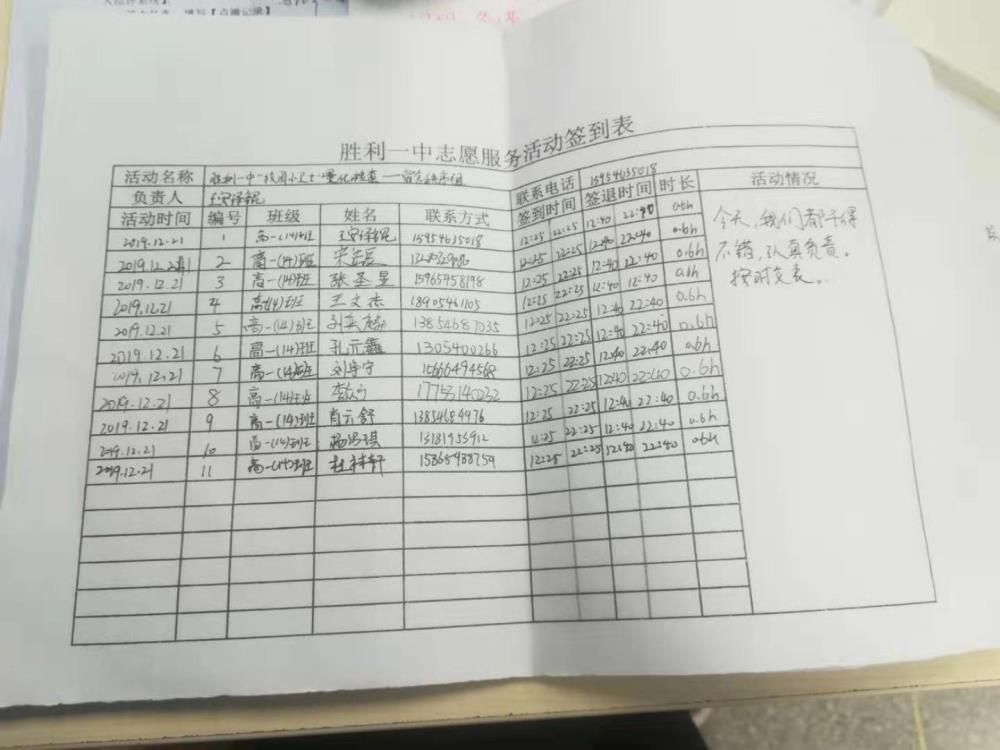 填写【点播记录】
胜利一中志愿服务活动签到表
活动名称 胜利一中"校园小卫士"量化检查 联系电话 15954635018 活动情况
负责人 签到时间 签退时间 时长
活动时间 编号 班级 姓名 联系方式
2019.12.21 1 高一(14)班 15954635018 12:25 22:25 12:40 22:40 0.6h
2019.12.21 2 高一(14)班 12:25 22:25 12:40 22:40 0.6h
2019.12.21 3 高一(14)班 张圣昱 15965458198 12:25 22:25 12:40 12:40 0.6h
2019.12.21 4 高一(14)班 王文杰 18905461105 12:25 22:25 12:40 22:40 0.6h
2019.12.21 5 高一(14)班 13854687035 12:25 22:25 12:40 22:40 0.6h
2019.12.21 6 高一(14)班 孔元鑫 1305400266 12:25 22:25 12:40 22:40 0.6h
2019.12.21 7 高一(14)班 刘宇宁 15666494568 12:25 22:25 12:40 22:40 0.6h
2019.12.21 8 高一(14)班 12:25 22:25 12:40 22:40 0.6h
2019.12.21 9 高一(14)班 肖云舒 13854684976 12:25 22:25 12:40 22:40 0.6h
2019.12.21 10 高一(14)班 13181953912 12:25 22:25 12:40 22:40 0.6h
2019.12.21 11 高一(14)班 15865988759
今天,我们都干得
不错,认真负责。
按时交表。